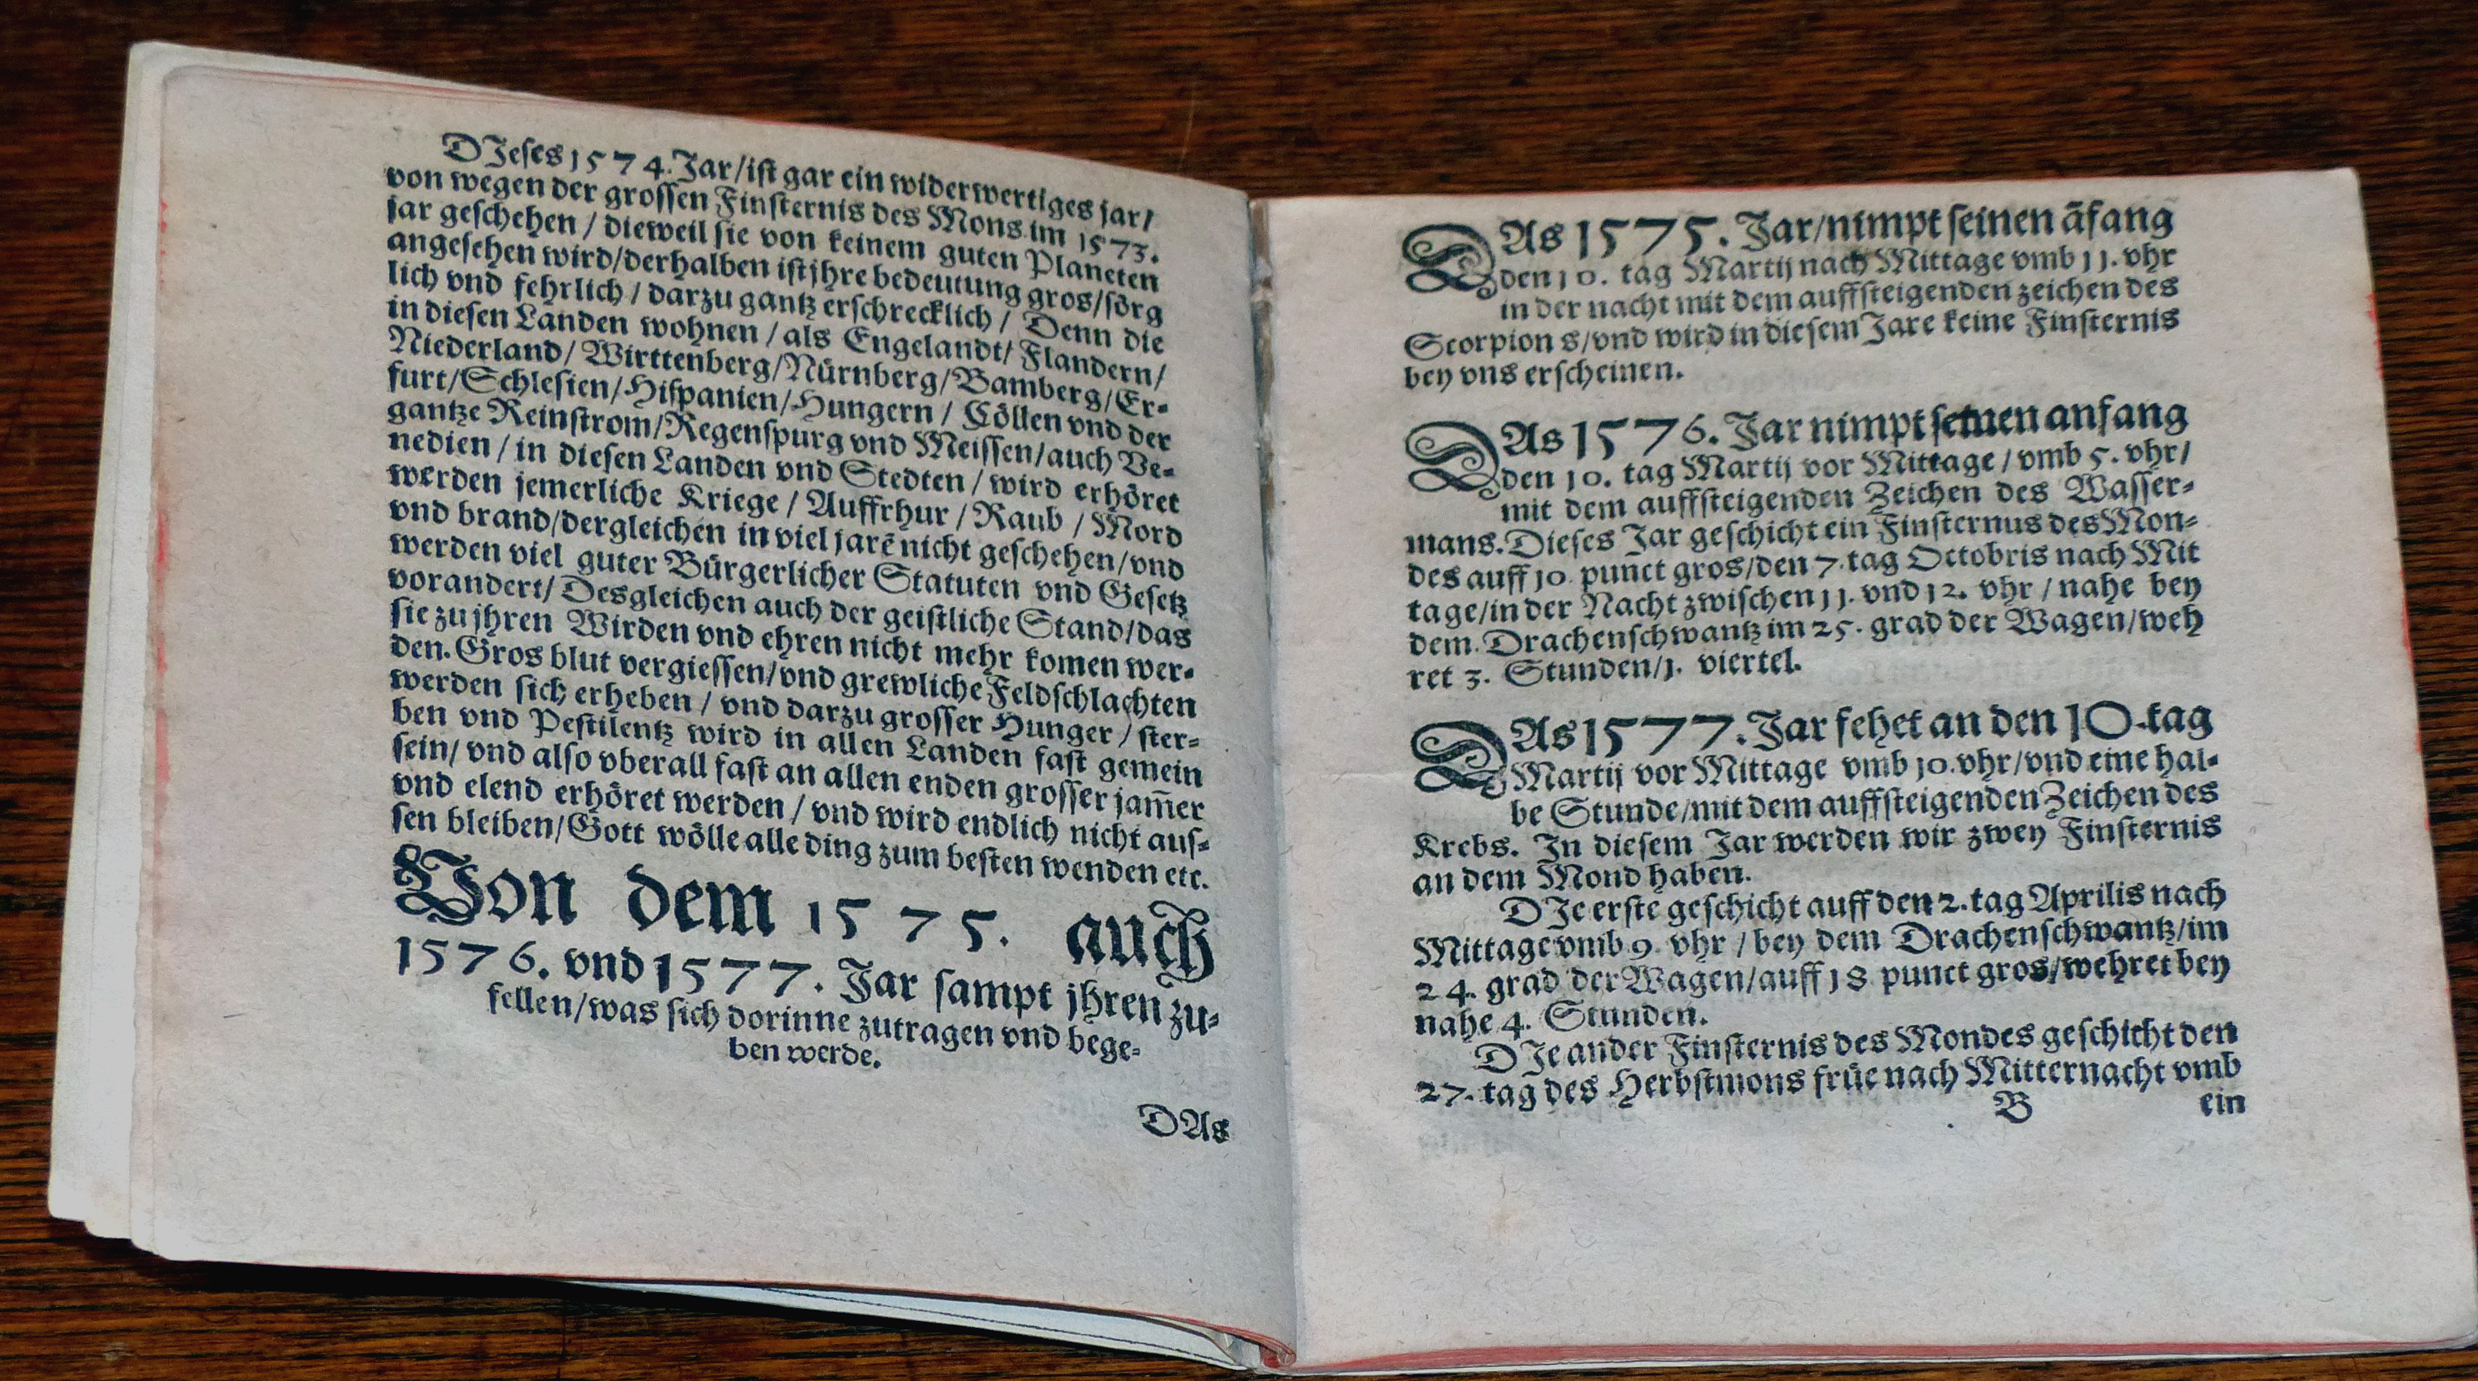 DJeses 1574. Jar/ist gar ein widerwertiges jar/
von wegen der grossen Finsternis des Mons im 1573.
jar geschehen / dieweil sie von keinem guten Planeten
angesehen wird/derhalben ist jhre bedeutung gros/sörg
lich vnd fehrlich / darzu gantz erschrecklich / Denn die
in diesen Landen wohnen / als Engelandt/ Flandern/
Niederland/ Wirttenberg/Nürnberg/Bamberg/Er-
furt/Schlesien/Hispanien/Hungern / Cöllen vnd der
gantze Reinstrom/Regenspurg vnd Meissen/auch Ve-
nedien / in diesen Landen vnd Stedten / wird erhöret
werden jemerliche Kriege / Auffrhur / Raub / Mord
vnd brand/dergleichen in viel jarē nicht geschehen/vnd
werden viel guter Bürgerlicher Statuten vnd Gesetz
vorandert/ Desgleichen auch der geistliche Stand/das
sie zu jhren Wirden vnd ehren nicht mehr komen wer-
den. Gros blut vergiessen/vnd grewliche Feldschlachten
werden sich erheben / vnd darzu grosser Hunger / ster-
ben vnd Pestilentz wird in allen Landen fast gemein
sein/ vnd also vberall fast an allen enden grosser jam̄er
vnd elend erhöret werden / vnd wird endlich nicht aus-
sen bleiben/Gott wölle alle ding zum besten wenden etc.
Von dem 1575. auch
1576. vnd 1577. Jar sampt jhren zu-
fellen/was sich dorinne zutragen vnd bege-
ben werde.
DAs
DAs 1575. Jar/nimpt seinen āfang
den 10. tag Martij nach Mittage vmb 11. vhr
in der nacht mit dem auffsteigenden zeichen des
Scorpion s/vnd wird in diesem Jare keine Finsternis
bey vns erscheinen.
DAs 1576. Jar nimpt seinen anfang
den 10. tag Martij vor Mittage / vmb 5. vhr/
mit dem auffsteigenden Zeichen des Wasser-
mans. Dieses Jar geschicht ein Finsternus des Mon-
des auff 10 punct gros/den 7. tag Octobris nach Mit
tage/in der Nacht zwischen 11. vnd 12. vhr / nahe bey
dem Drachenschwantz im 25. grad der Wagen/weh
ret 3. Stunden/1. viertel.
DAs 1577. Jar fehet an den 10. tag
Martij vor Mittage vmb 10. vhr/vnd eine hal-
be Stunde/mit dem auffsteigenden Zeichen des
Krebs. In diesem Jar werden wir zwey Finsternis
an dem Mond haben.
DJe erste geschicht auff den 2. tag Aprilis nach
Mittage vmb 9. vhr / bey dem Drachenschwantz/im
24. grad der Wagen/auff 18 punct gros/wehret bey
nahe 4. Stunden.
DJe ander Finsternis des Mondes geschicht den
27. tag des Herbstmons früe nach Mitternacht vmb
B ein